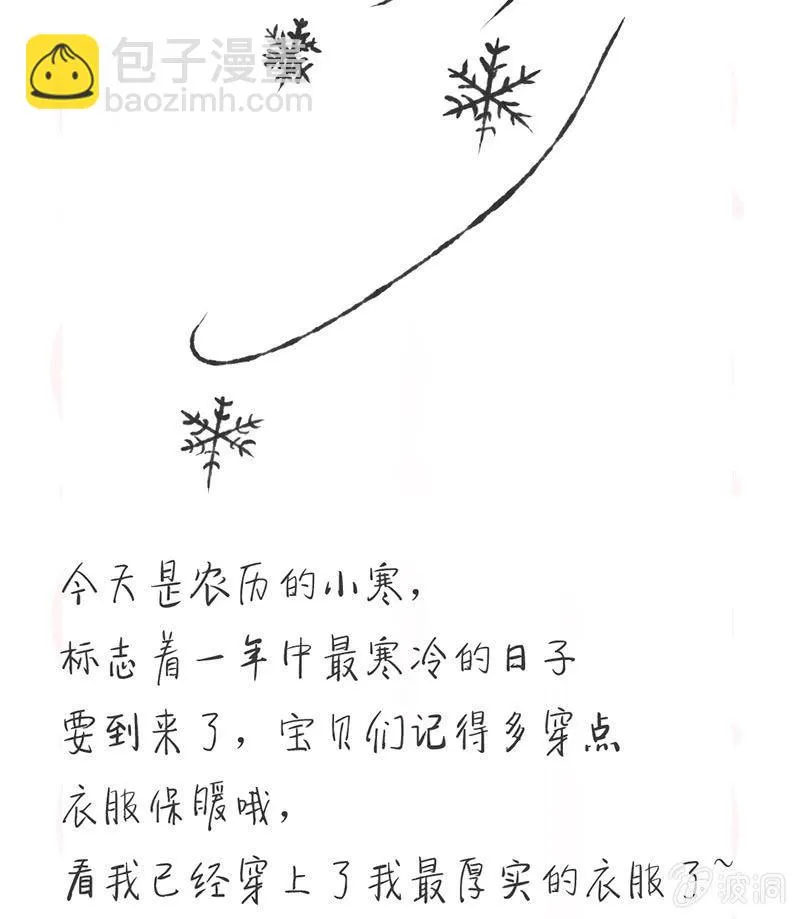 包子漫畫
baozimh.com
今天是农历的小寒，
标志着一年中最寒冷的日子
要到来了，宝贝们记得多穿点
衣服保暖哦，
看我已经穿上了我最厚实的衣服了~
波洞